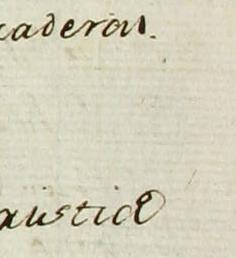 caderon.
austice